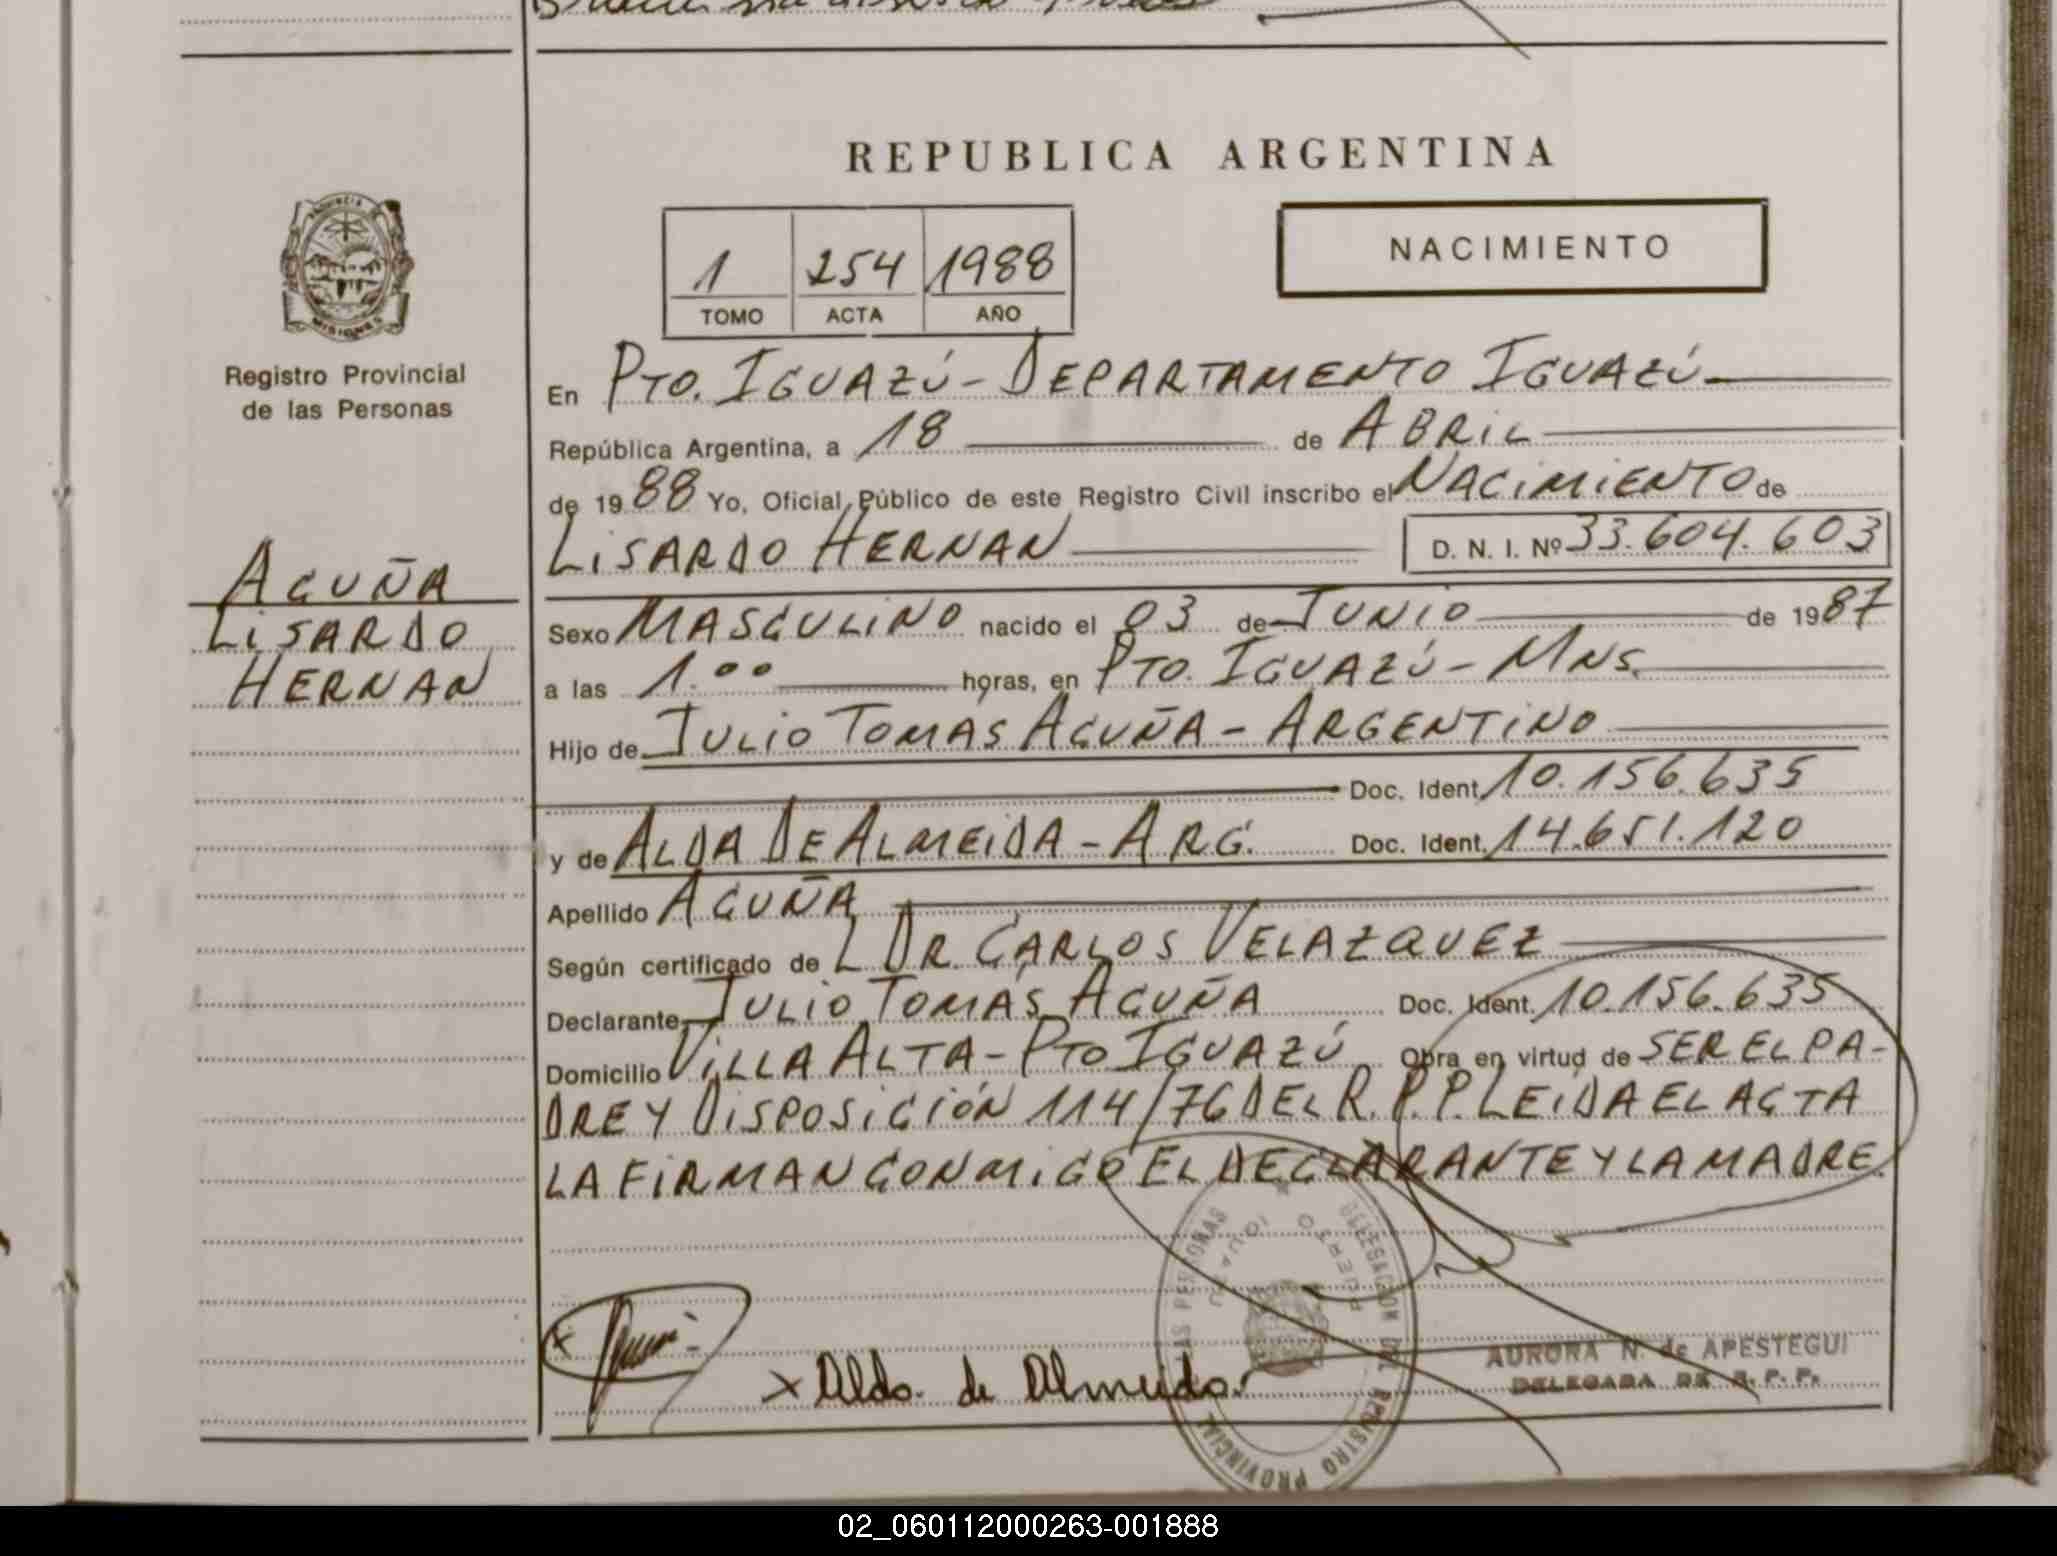 REPUBLICA ARGENTINA
PROVINCIA DE
MISIONES
Registro Provincial
de las Personas
1 254 1988
TOMO ACTA AÑO
NACIMIENTO
En PTO. IGUAZÚ - DEPARTAMENTO IGUAZÚ
República Argentina, a 18 de ABRIL
de 1988 Yo, Oficial Público de este Registro Civil inscribo el NACIMIENTO de
LISARDO HERNAN D. N. I. Nº 33.604.603
ACUÑA
LISARDO
HERNAN
Sexo MASCULINO nacido el 03 de JUNIO de 1987
a las 1.00 horas, en PTO. IGUAZÚ - MNS.
Hijo de JULIO TOMAS ACUÑA - ARGENTINO
Doc. Ident. 10.156.635
y de ALDA DE ALMEIDA - ARG. Doc. Ident. 14.651.120
Apellido ACUÑA
Según certificado de L DR. CARLOS VELAZQUEZ
Declarante JULIO TOMÁS ACUÑA Doc. Ident. 10.156.635
Domicilio VILLA ALTA - PTO IGUAZÚ Obra en virtud de SER EL PA-
DRE Y DISPOSICIÓN 114/76 DEL R.P.P. LEIDA EL ACTA
LA FIRMAN CONMIGO EL DECLARANTE Y LA MADRE.
x
x Alda. de Almeida.
DELEGACION DEL REGISTRO PROVINCIAL LAS PERSONAS
PUERTO IGUAZU
AURORA N. de APESTEGUI
DELEGADA DE R. P. P.
02_060112000263-001888